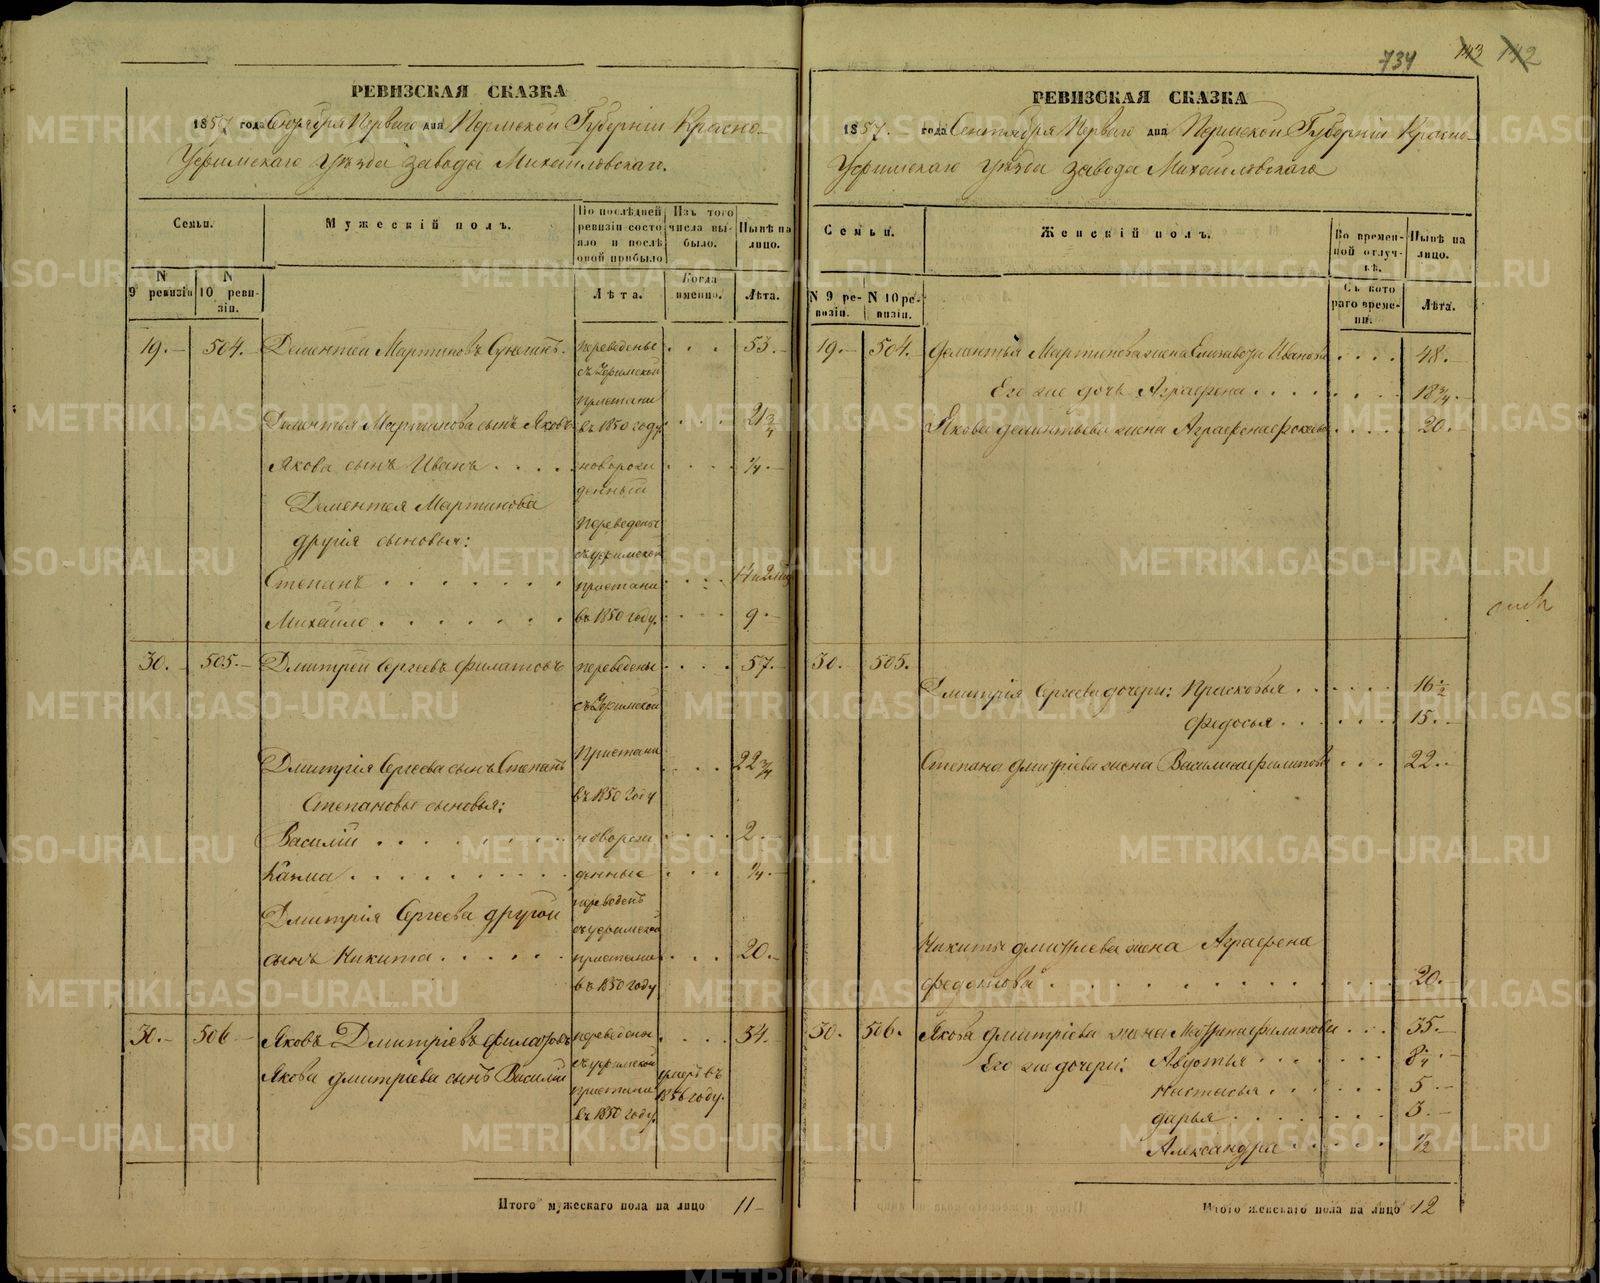 734 143 142
РЕВИЗСКАЯ СКАЗКА
1857 года Сентября Перваго дня Пермской Губерніи Красно-
Уфимскаго Уѣзда завода Михайловскаго.
Семьи.
Мужескій полъ.
По послѣдней ревизіи состояло и послѣ оной прибыло
Изъ того числа выбыло.
Нынѣ на лицо.
N 9 ревизіи
N 10 ревизіи.
Лѣта.
Когда именно.
Лѣта.
19. 504. Дементей Мартиновъ переведенъ 53.
съ Уфимской
пристани
Дементья Мартинова сынъ Яковъ въ 1850 году 21 3/4
Якова сынъ Иванъ новорож 1/4
денный
Дементея Мартинова
другія сыновья: переведены
съ уфимской
Степанъ пристани
Михайло въ 1850 году. 9
30. 505. Дмитрей Сергеевъ Филатовъ переведены 57.
съ Уфимской
Дмитрія Сергеева сынъ Степанъ пристани 22 3/4
Степановы сыновья: въ 1850 году
Василій новорож 2
Казма денные 1/4
Дмитрія Сергеева другой переведенъ
съ уфимской
сынъ Никита пристани 20.
въ 1850 году
30. 506 Яковъ Дмитріевъ Филатовъ переведены 34.
съ уфимской
Якова дмитріева сынъ Василій пристани умеръ въ
въ 1850 году. 1856 году.
Итого мужескаго пола на лицо 11
РЕВИЗСКАЯ СКАЗКА
1857. года Сентября Перваго дня Пермской Губерніи Красно-
Уфимскаго Уѣзда завода Михайловскаго
Семьи.
Женскій полъ.
Во временной отлучкѣ.
Нынѣ на лицо.
N 9 ревизіи.
N 10 ревизіи.
Съ котораго времени.
Лѣта.
19. 504. Дементья Мартинова жена Елизавета Иванова 48.
Его же дочь Аграфена 18 3/4
Якова дементьева жена Аграфена 20.
30. 505.
Дмитрія Сергеева дочери: Прасковья 16 1/2
Федосья 15.
Степана дмитріева жена Василиса Филипова 22
Никиты дмитріева жена Аграфена
Федотова 20.
30. 506. Якова дмитріева жена Матрена Филипова 35.
Его же дочери: Авдотья 8 1/4
Настасья 5
дарья 3.
Александра 1/2
Итого женскаго пола на лицо 12